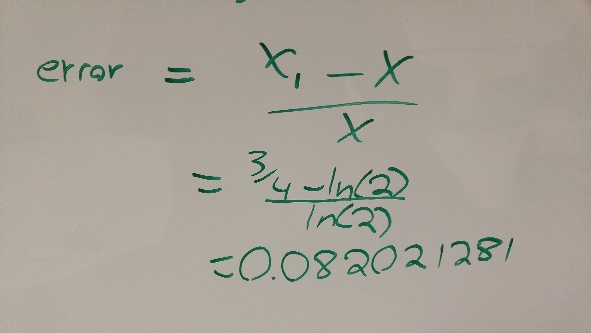 error = x₁ - x / x
= 3/4 - ln(2) / ln(2)
= 0.082021281